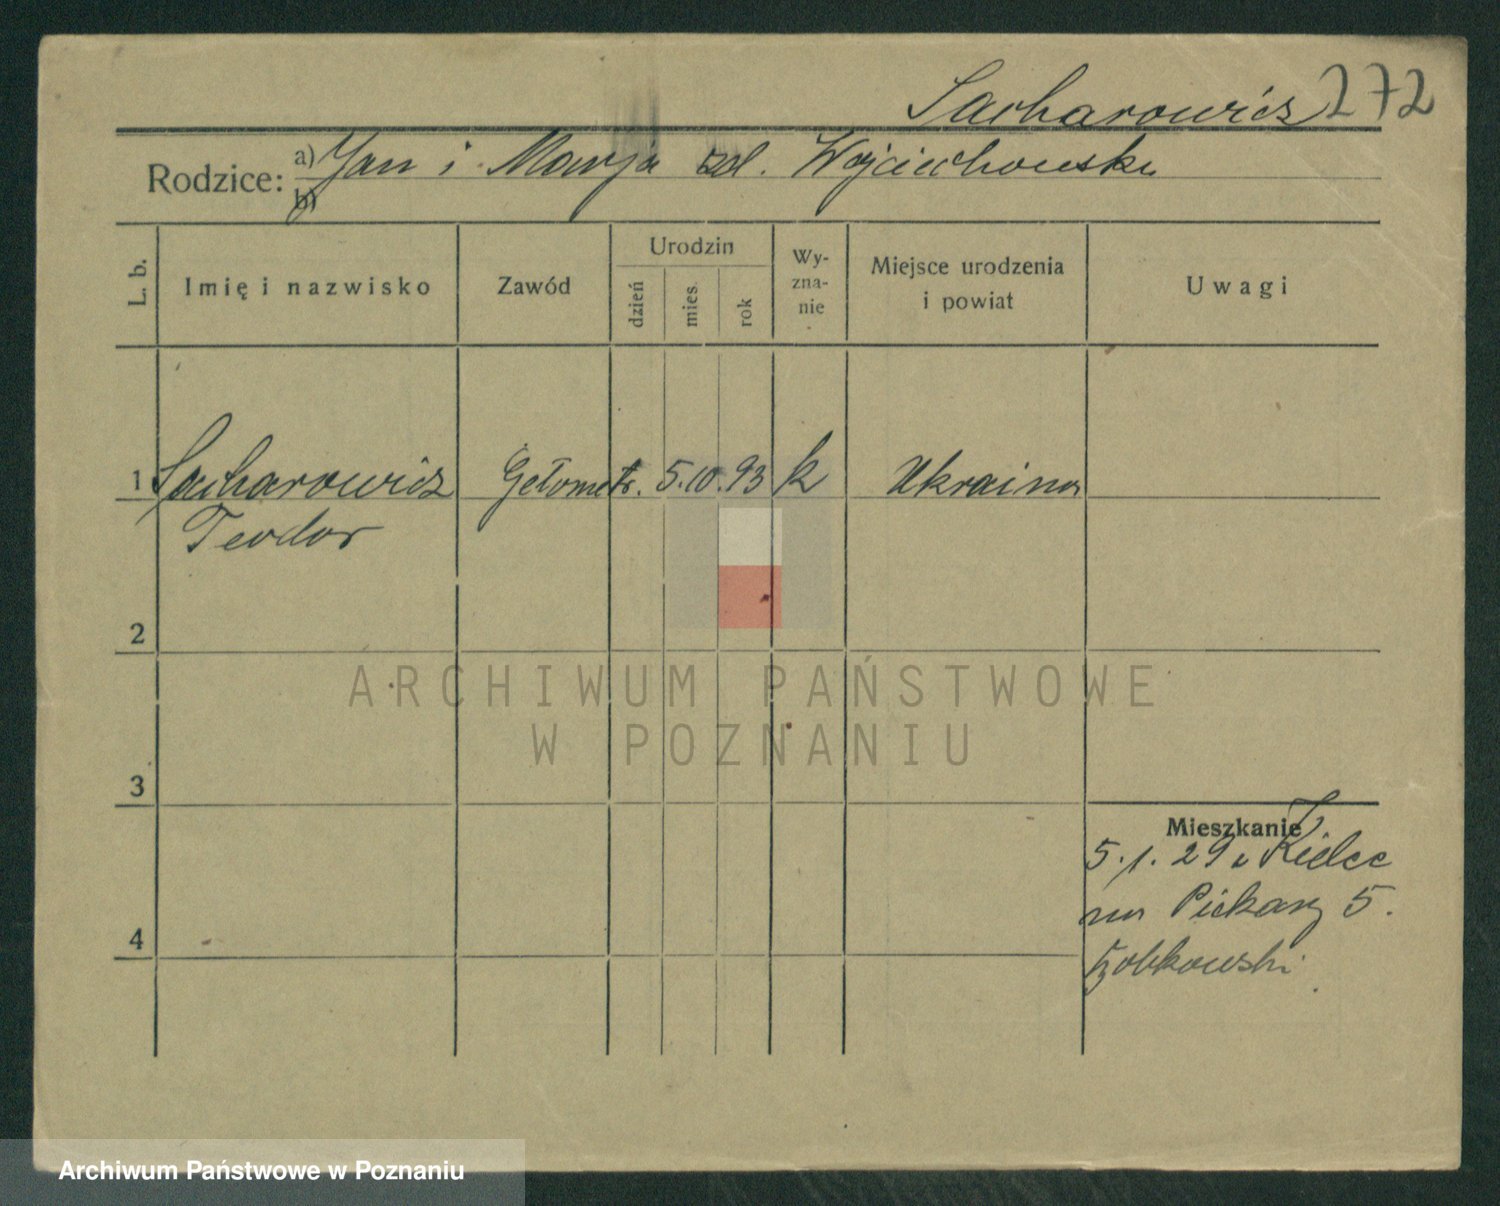 Sacharowicz 272
Rodzice: a) Jan i Marja zd. Wojciechowska
b)
L. b.
Imię i nazwisko
Zawód
Urodzin
dzień
mies.
rok
Wy-
zna-
nie
Miejsce urodzenia
i powiat
Uwagi
1 Sacharowicz Gełometr. 5.10.93 k Ukraina
Teodor
2
ARCHIWUM PAŃSTWOWE
W POZNANIU
3
Mieszkanie
5.1.29 z Kielce
na Piekary 5.
4
Archiwum Państwowe w Poznaniu